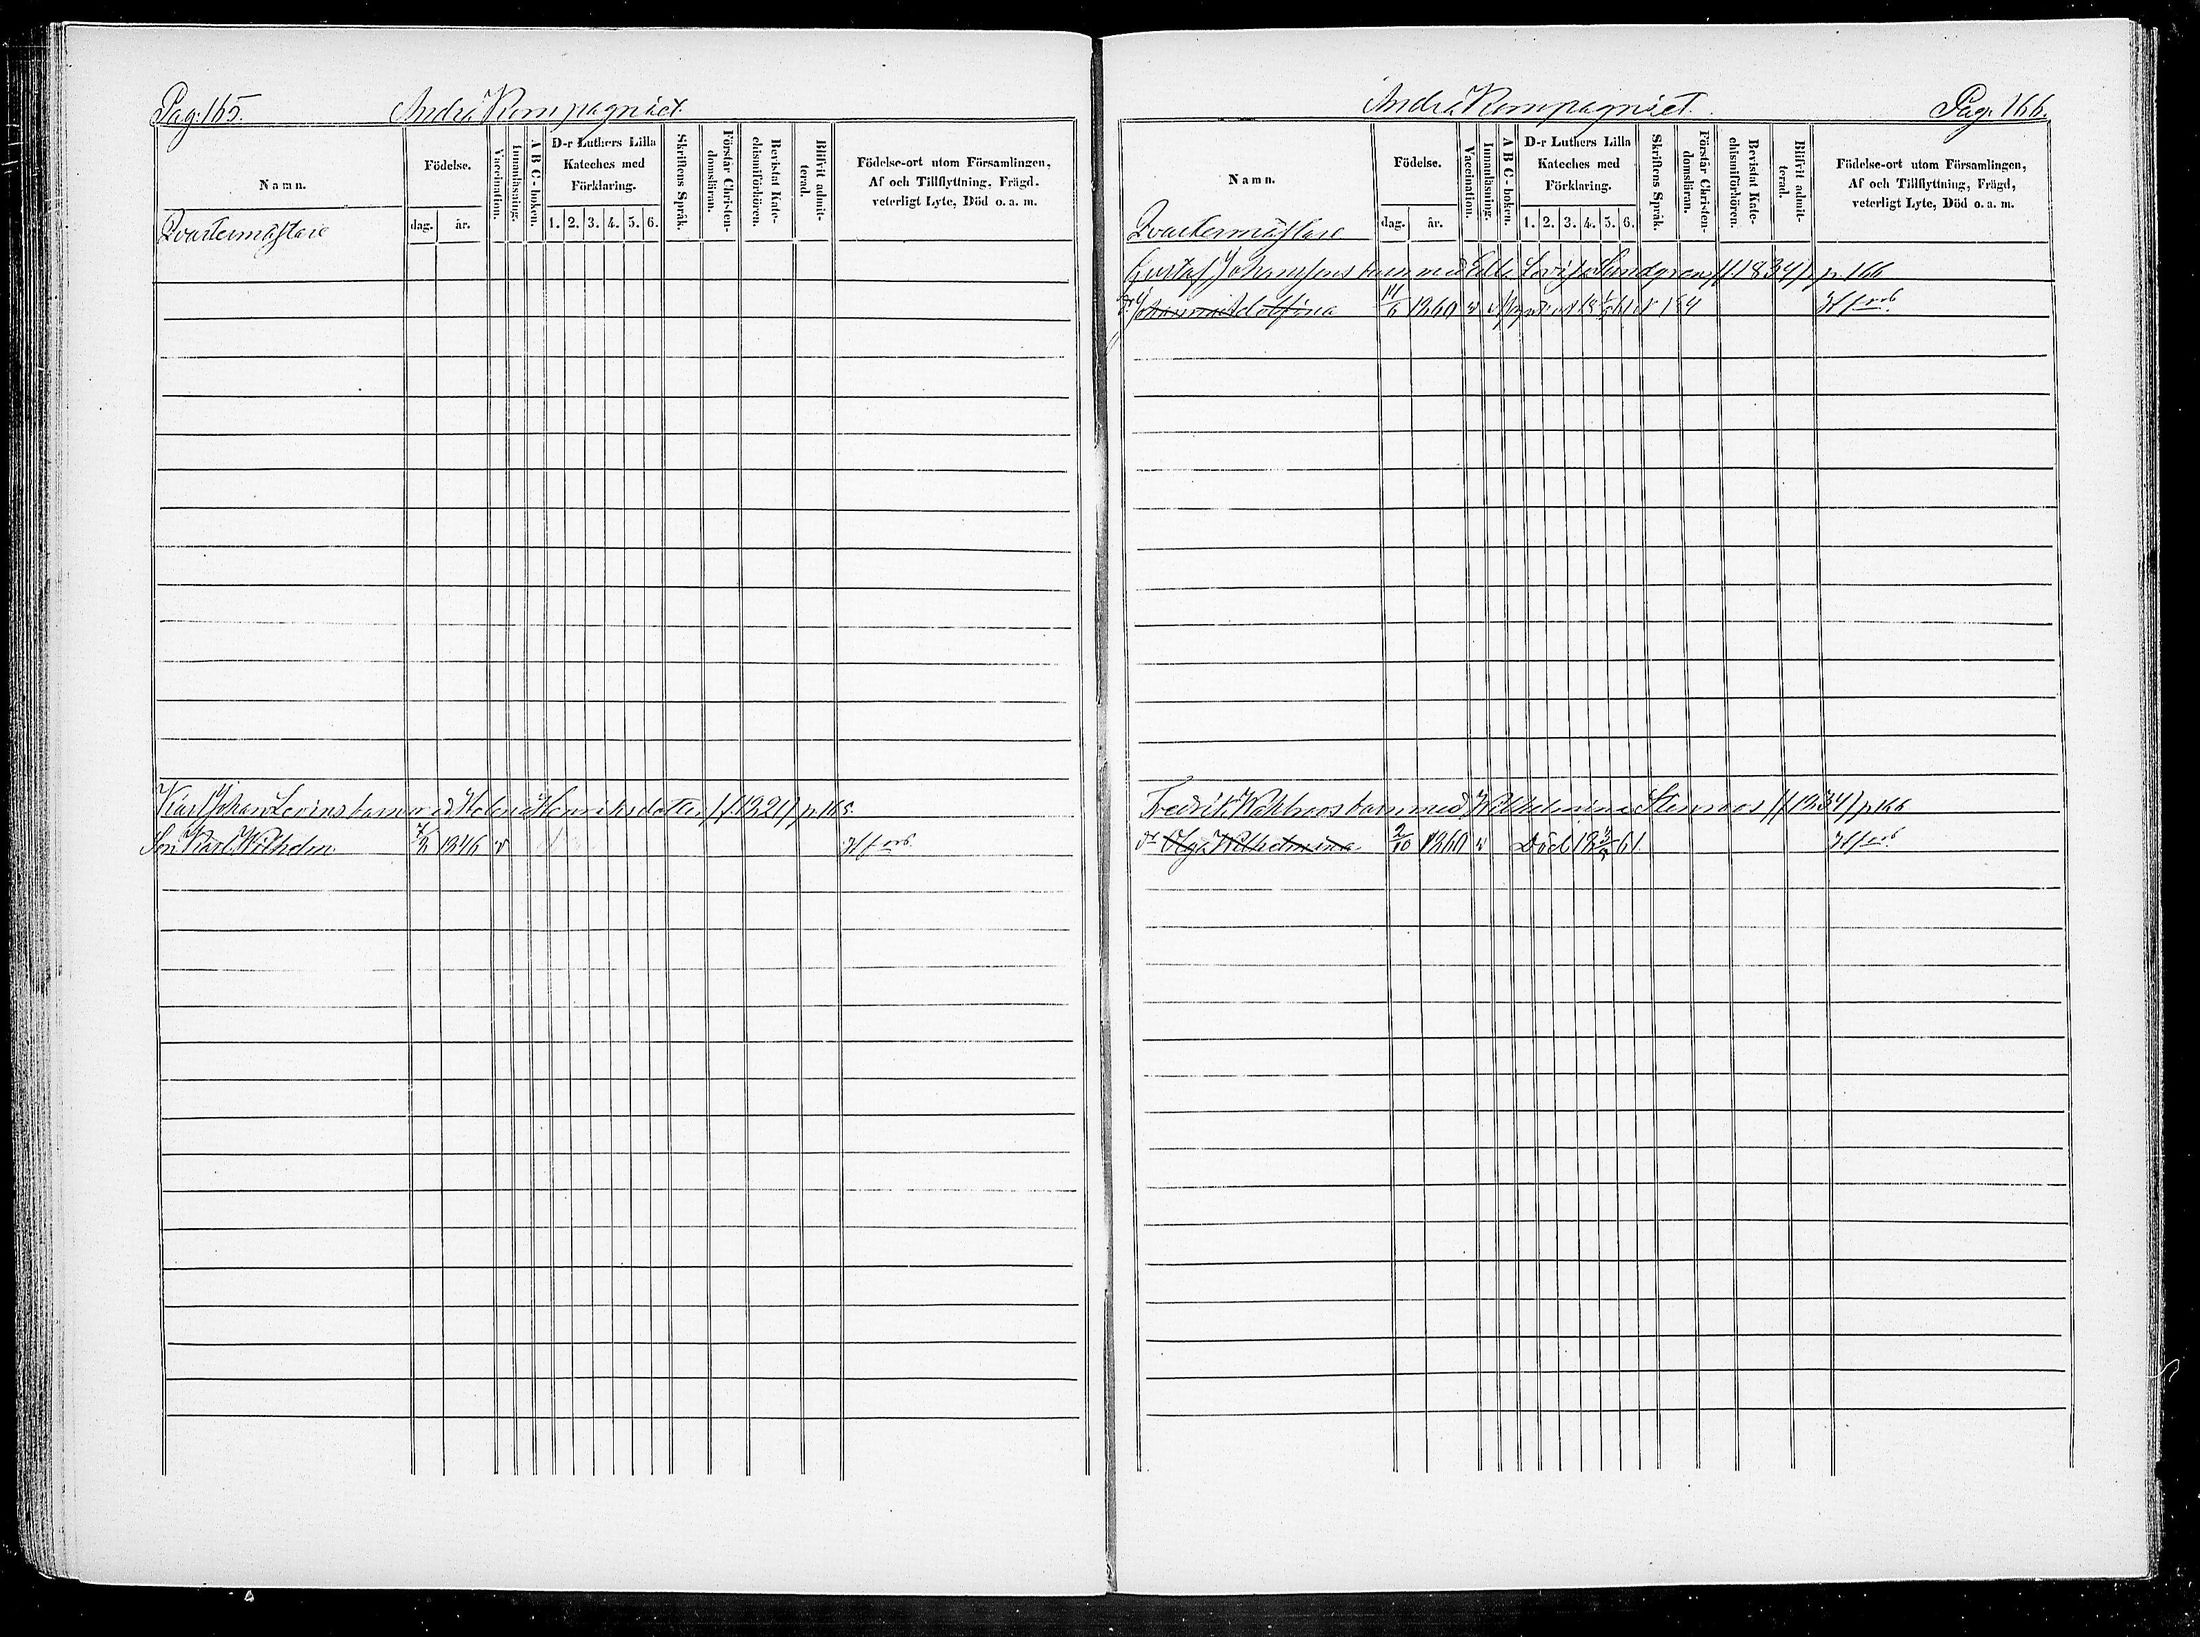 Pag. 165. Andra Kompagniet
Namn. Födelse. Vaccination. Innanläsning. A B C-boken. D-r Luthers Lilla Kateches med Förklaring. Skriftens Språk. Förstår Christendomsläran. Bevistat Katechismiförhören. Blifvit admitterad. Födelse-ort utom Församlingen, Af och Tillflyttning, Frägd, veterligt Lyte, Död o. a. m.
dag. år. 1. 2. 3. 4. 5. 6.
Qvartermästare
Karl Johan Levins barn med Helena Henriksdotter (f. 1821) p. 165.
Son Karl Wilhelm 1846 v
Andra Kompagniet. Pag. 166.
Namn. Födelse. Vaccination. Innanläsning. A B C-boken. D-r Luthers Lilla Kateches med Förklaring. Skriftens Språk. Förstår Christendomsläran. Bevistat Katechismiförhören. Blifvit admitterad. Födelse-ort utom Församlingen, Af och Tillflyttning, Frägd, veterligt Lyte, Död o. a. m.
dag. år. 1. 2. 3. 4. 5. 6.
Qvartermästare
Gustaf Johanssons barn med Lovisa Sundgren (f 1834) p. 166
dr Johanna Adolfina 14/6 1860 v
Fredrik Wahlroos barn med Wilhelmina Stenroos (f 1834) p 166
dr Olga Wilhelmina 2/10 1860 v Död 18 61.